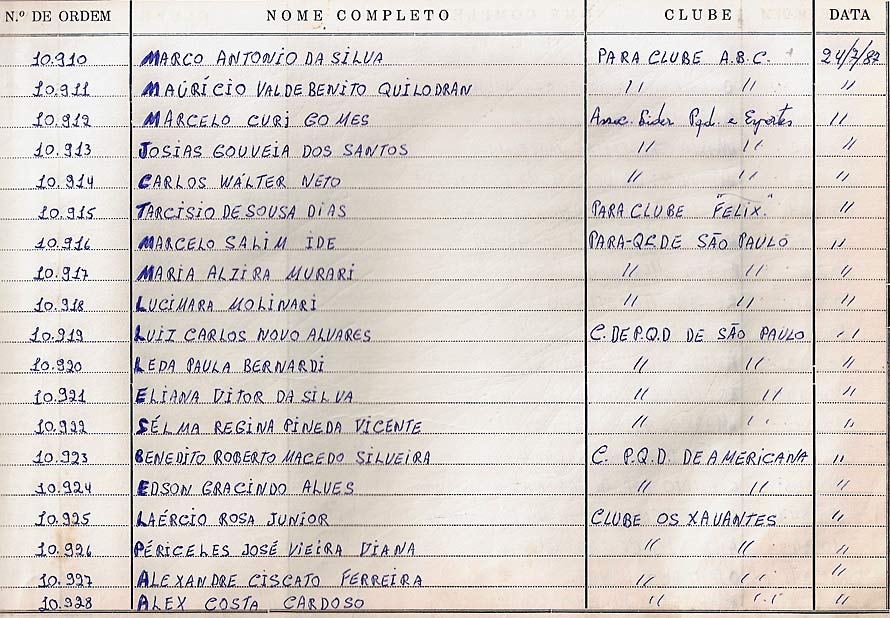 N.º DE ORDEM NOME COMPLETO CLUBE DATA
10.910 MARCO ANTONIO DA SILVA PARA CLUBE A.B.C. 24/7/87
10.911 MAURÍCIO VALDEBENITO QUILODRAN " " "
10.912 MARCELO CURI GOMES Assoc. Pqd. e Esportes "
10.913 JOSIAS GOUVEIA DOS SANTOS " " "
10.914 CARLOS WALTER NETO " " "
10.915 TARCISIO DE SOUSA DIAS PARA CLUBE "FELIX." "
10.916 MARCELO SALIM IDE DE SÃO PAULO "
10.917 MARIA ALZIRA MURARI " " "
10.918 LUCIMARA MOLINARI " " "
10.919 LUIZ CARLOS NOVO ALVARES C. DE P.Q.D DE SÃO PAULO "
10.920 LEDA PAULA BERNARDI " " "
10.921 ELIANA VITOR DA SILVA " " "
10.922 SÉLMA REGINA PINEDA VICENTE " " "
10.923 BENEDITO ROBERTO MACEDO SILVEIRA C. P.Q.D. DE AMERICANA "
10.924 EDSON GRACINDO ALVES " " "
10.925 LAÉRCIO ROSA JUNIOR CLUBE OS XAVANTES "
10.926 PÉRICELES JOSÉ VIEIRA VIANA " " "
10.927 ALEXANDRE CISCATO FERREIRA " " "
10.928 ALEX COSTA CARDOSO " " "